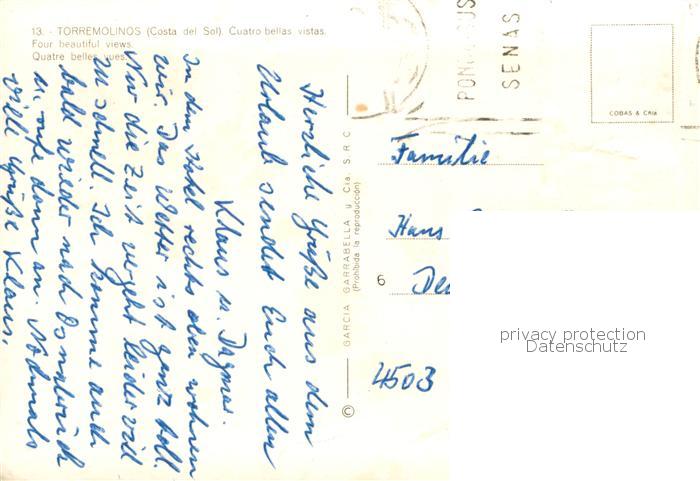 13. - TORREMOLINOS (Costa del Sol). Cuatro bellas vistas.
Four beautiful views.
Quatre belles vues.
Herzliche Grüße aus dem
Urlaub sendet Euch allen
Klaus u. Dagmar.
In dem Hotel rechts oben wohnen
wir. Das Wetter ist ganz toll.
Nur die Zeit vergeht leider viel
zu schnell. Ich komme auch
bald wieder nach Osnabrück
u. rufe dann an. Nochmals
viele Grüße Klaus.
© GARCIA GARRABELLA y Cía. S.R.C.
(Prohibida la reproducción)
SEÑAS
COBAS & CRIA
Familie
Hans
6
4503
privacy protection
Datenschutz